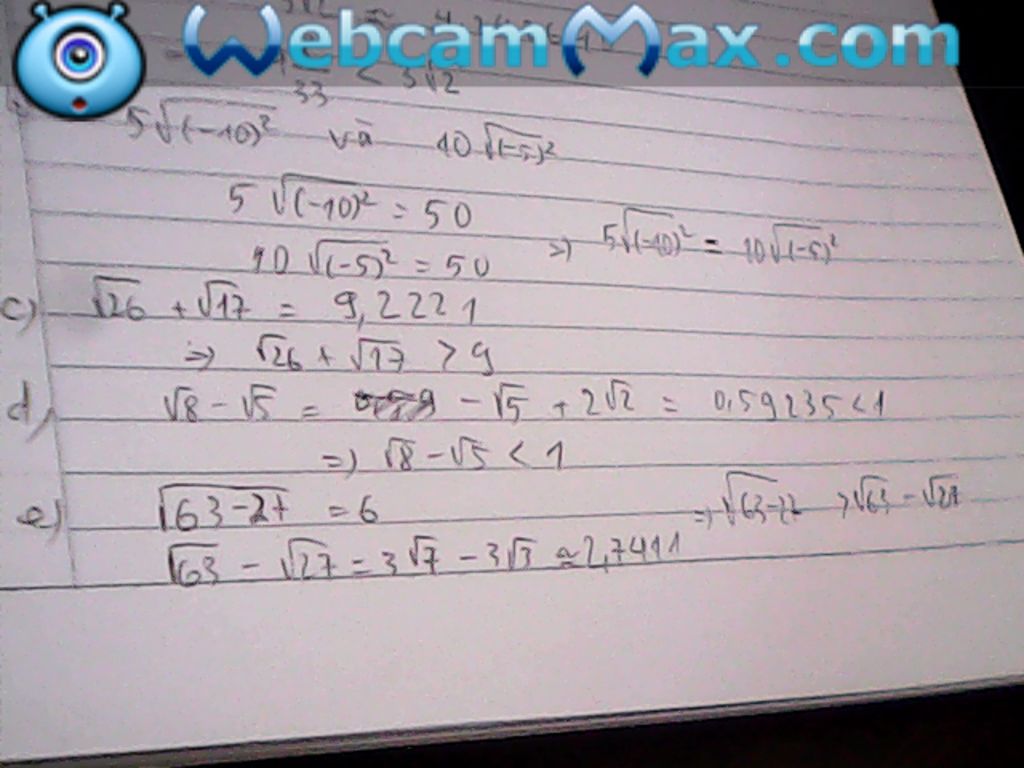 WebcamMax.com
33 < 3√2
5√(-10)² và 10√(-5)²
5√(-10)² = 50
10√(-5)² = 50 => 5√(-10)² = 10√(-5)²
c) √26 + √17 = 9,2221
=> √26 + √17 > 9
d) √8 - √5 = - √5 + 2√2 = 0,59235 < 1
=> √8 - √5 < 1
e) √63-27 = 6 => √63-27 > √63 - √27
√63 - √27 = 3√7 - 3√3 ≈ 2,7411